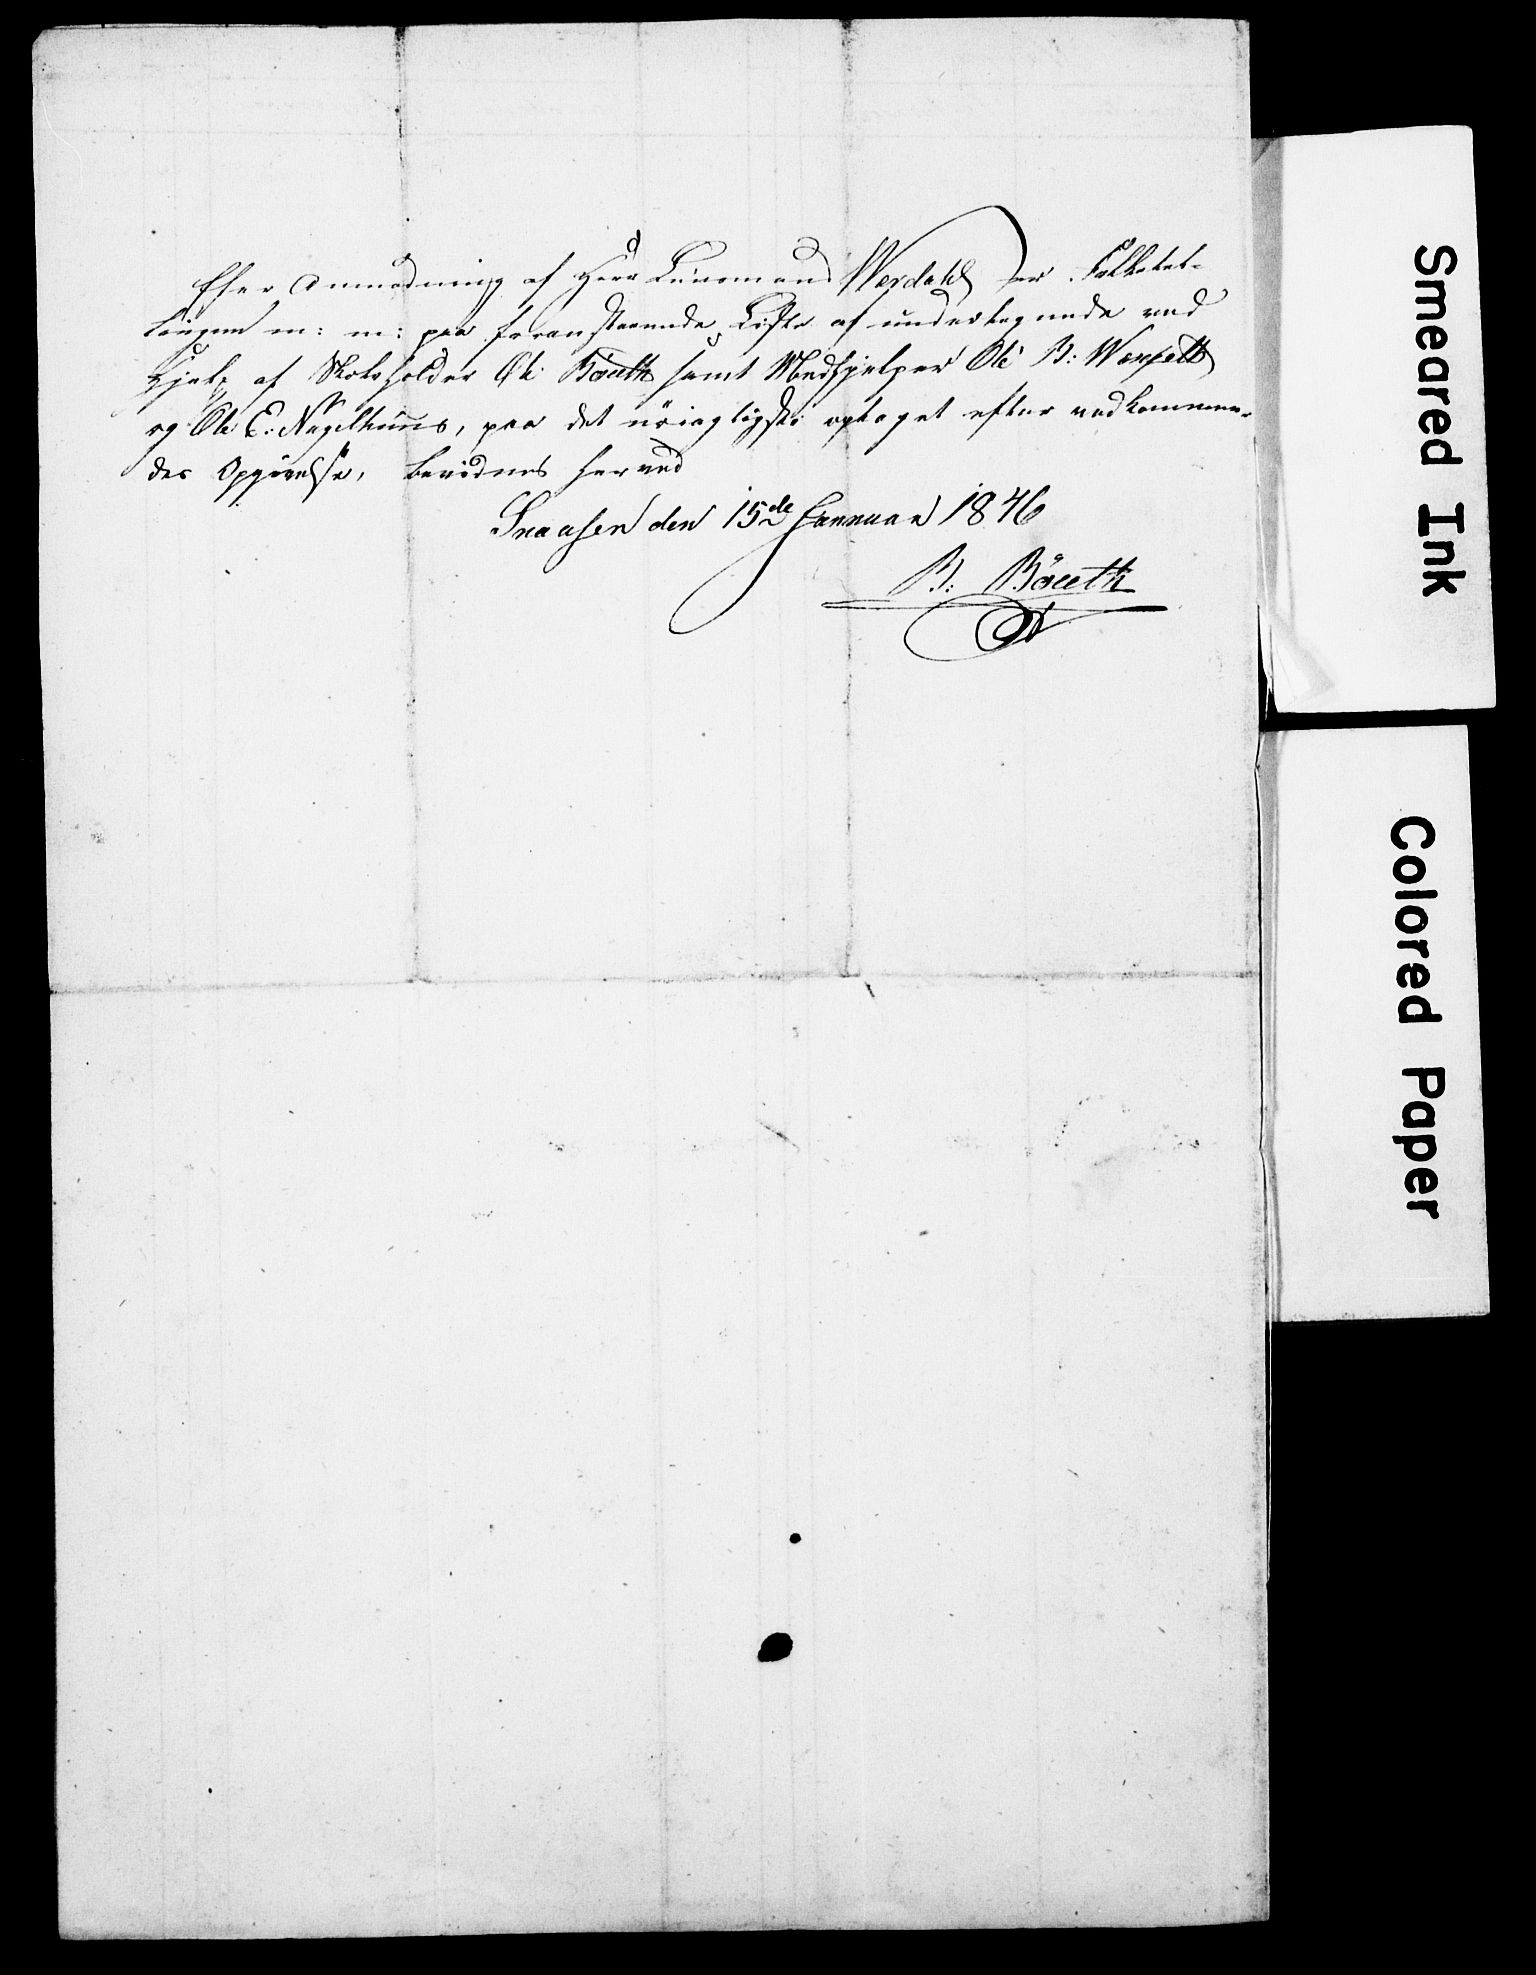 Efter Anmodning af Herr Lensmand Værdahl er Folketæl-
lingen m: m: paa foranstaaende Liste af undertegnede ved
Hjelp af Skoleholder Ole Böeeth samt Medhjelper Ole B:
og Ole E: Nagelhuus, paa det nöiagtigste optaget efter vedkommen-
des Opgivelse, bevidnes herved
Snaasen den 15de Januar 1846
B: Böeeth
Smeared Ink
Colored Paper